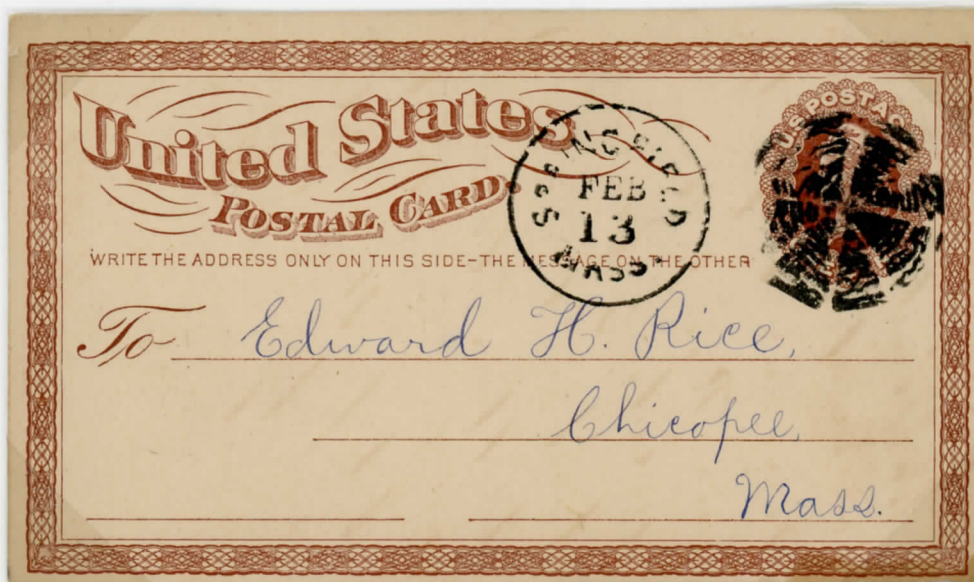 United States
POSTAL CARD.
U.S. POSTAGE
SPRINGFIELD
FEB
13
MASS.
WRITE THE ADDRESS ONLY ON THIS SIDE-THE MESSAGE ON THE OTHER
To Edward H. Rice,
Chicopee,
Mass.